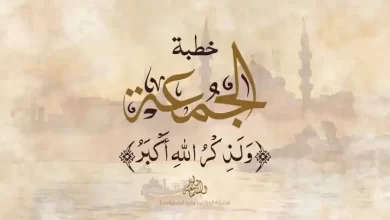 خطبة
الجُمُعَة
﴿وَلَذِكْرُ اللهِ أَكْبَرُ﴾